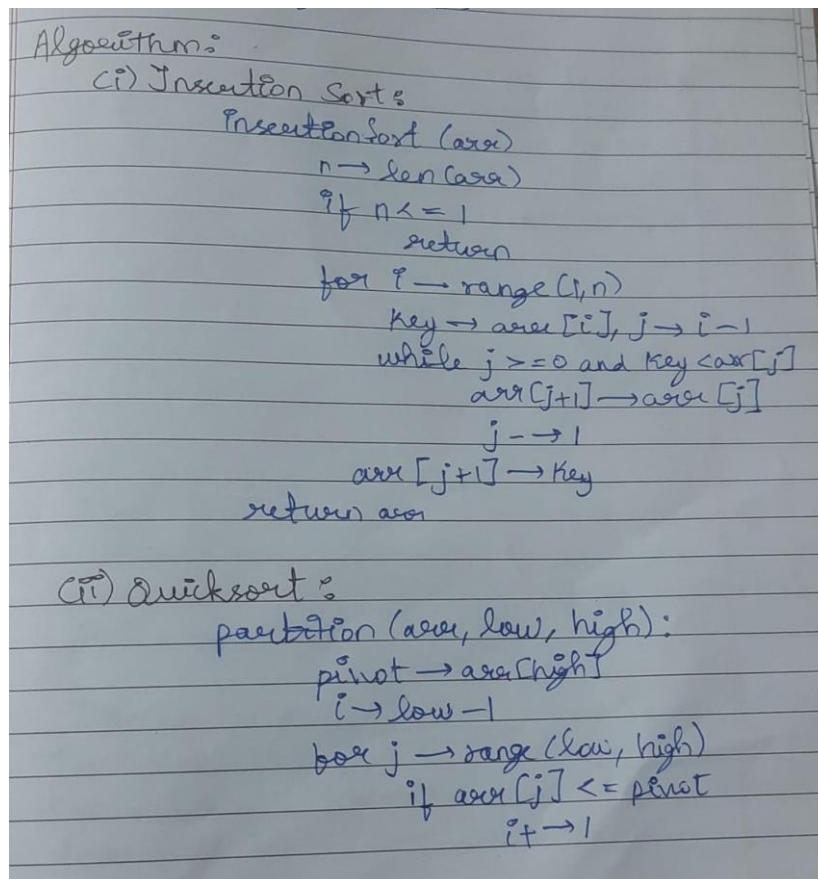 Algorithm:
(i) Insertion Sort:
insertionSort (arr)
n → len(arr)
if n <= 1
return
for i → range(1,n)
key → arr [i], j → i-1
while j >= 0 and key < arr[j]
arr[j+1] → arr [j]
j - → 1
arr [j+1] → key
return arr
(ii) Quicksort :
partition (arr, low, high):
pivot → arr[high]
i → low -1
for j → range (low, high)
if arr [j] <= pivot
i+ → 1